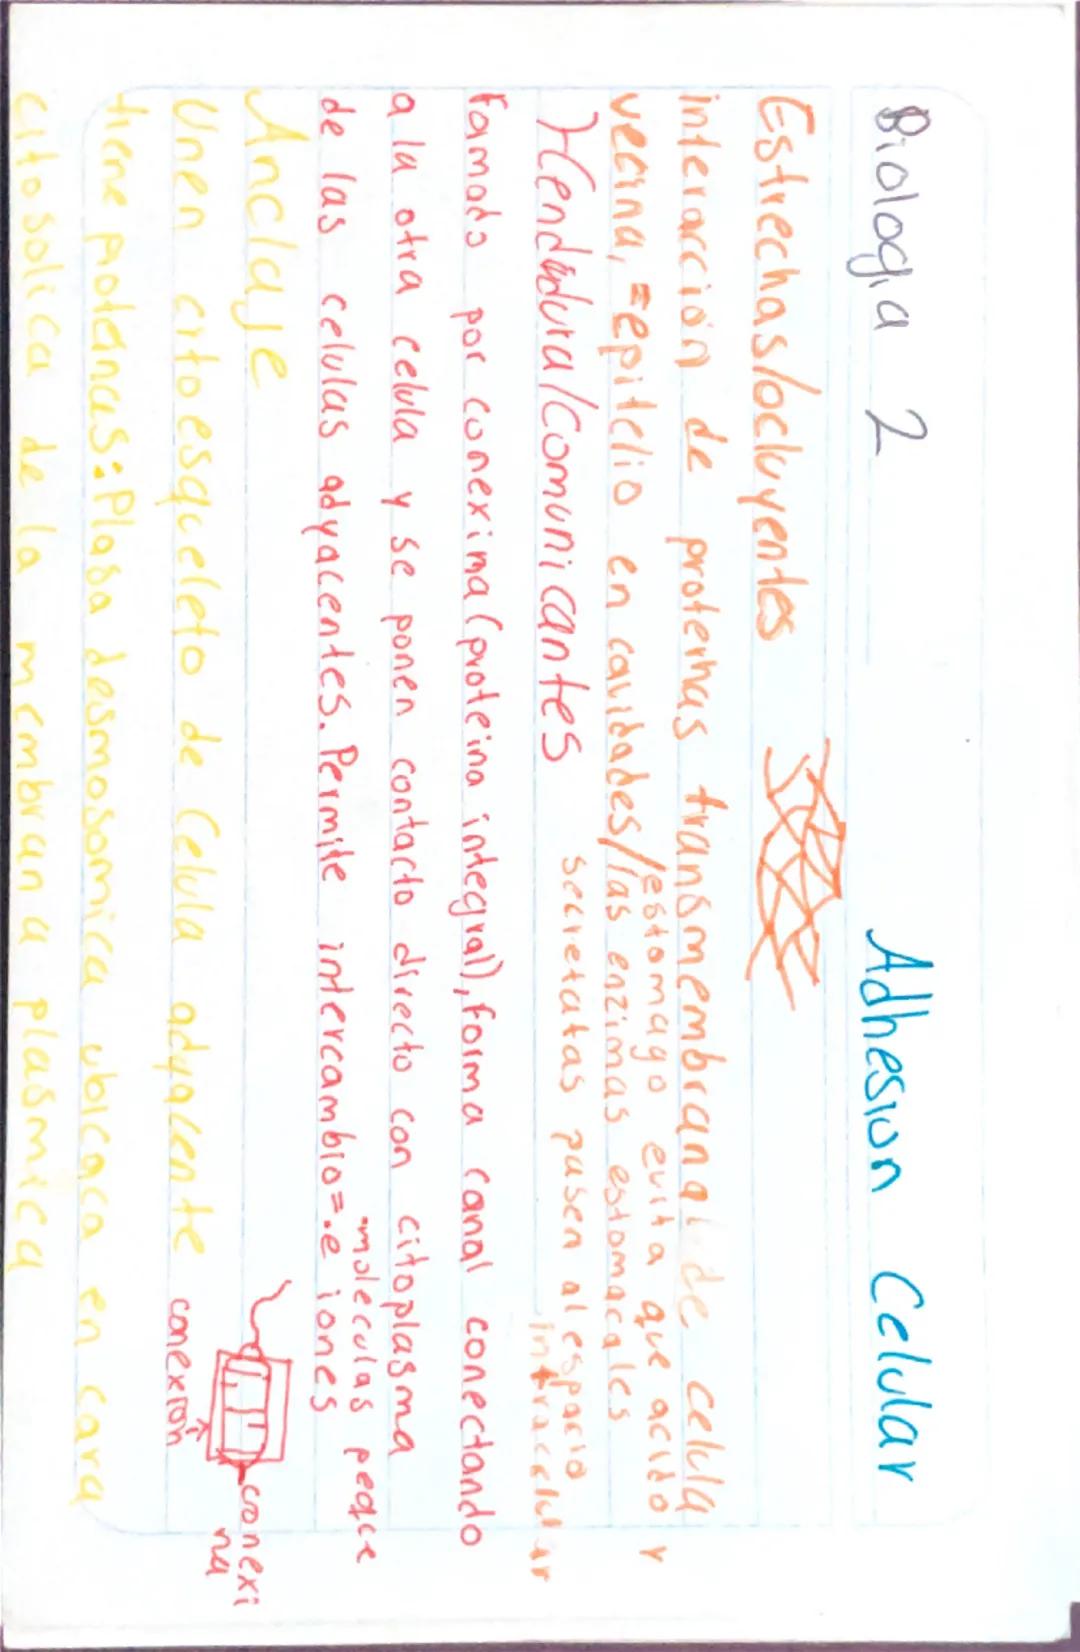 Biologia 2 Adhesion Celular
Estrechas/ocluyentes
interacción de proteinas transmembranal de celula
vecina, =epitelio en cavidades/estomago evita que acido y
/las enzimas estomacales
secretatas pasen al espacio
intracelular
Hendidura/Comunicantes
Famado por conexima (proteina integral), forma canal conectando
a la otra celula y se ponen contacto directo con citoplasma
de las celulas adyacentes. Permite intercambio=.e iones
•moleculas peqce
Anclaje
Unen citoesqueleto de Celula adyacente
conexión
conexi
na
tiene proteinas: Plasa desmosomica ubicaca en cara
citosolica de la membrana plasmica